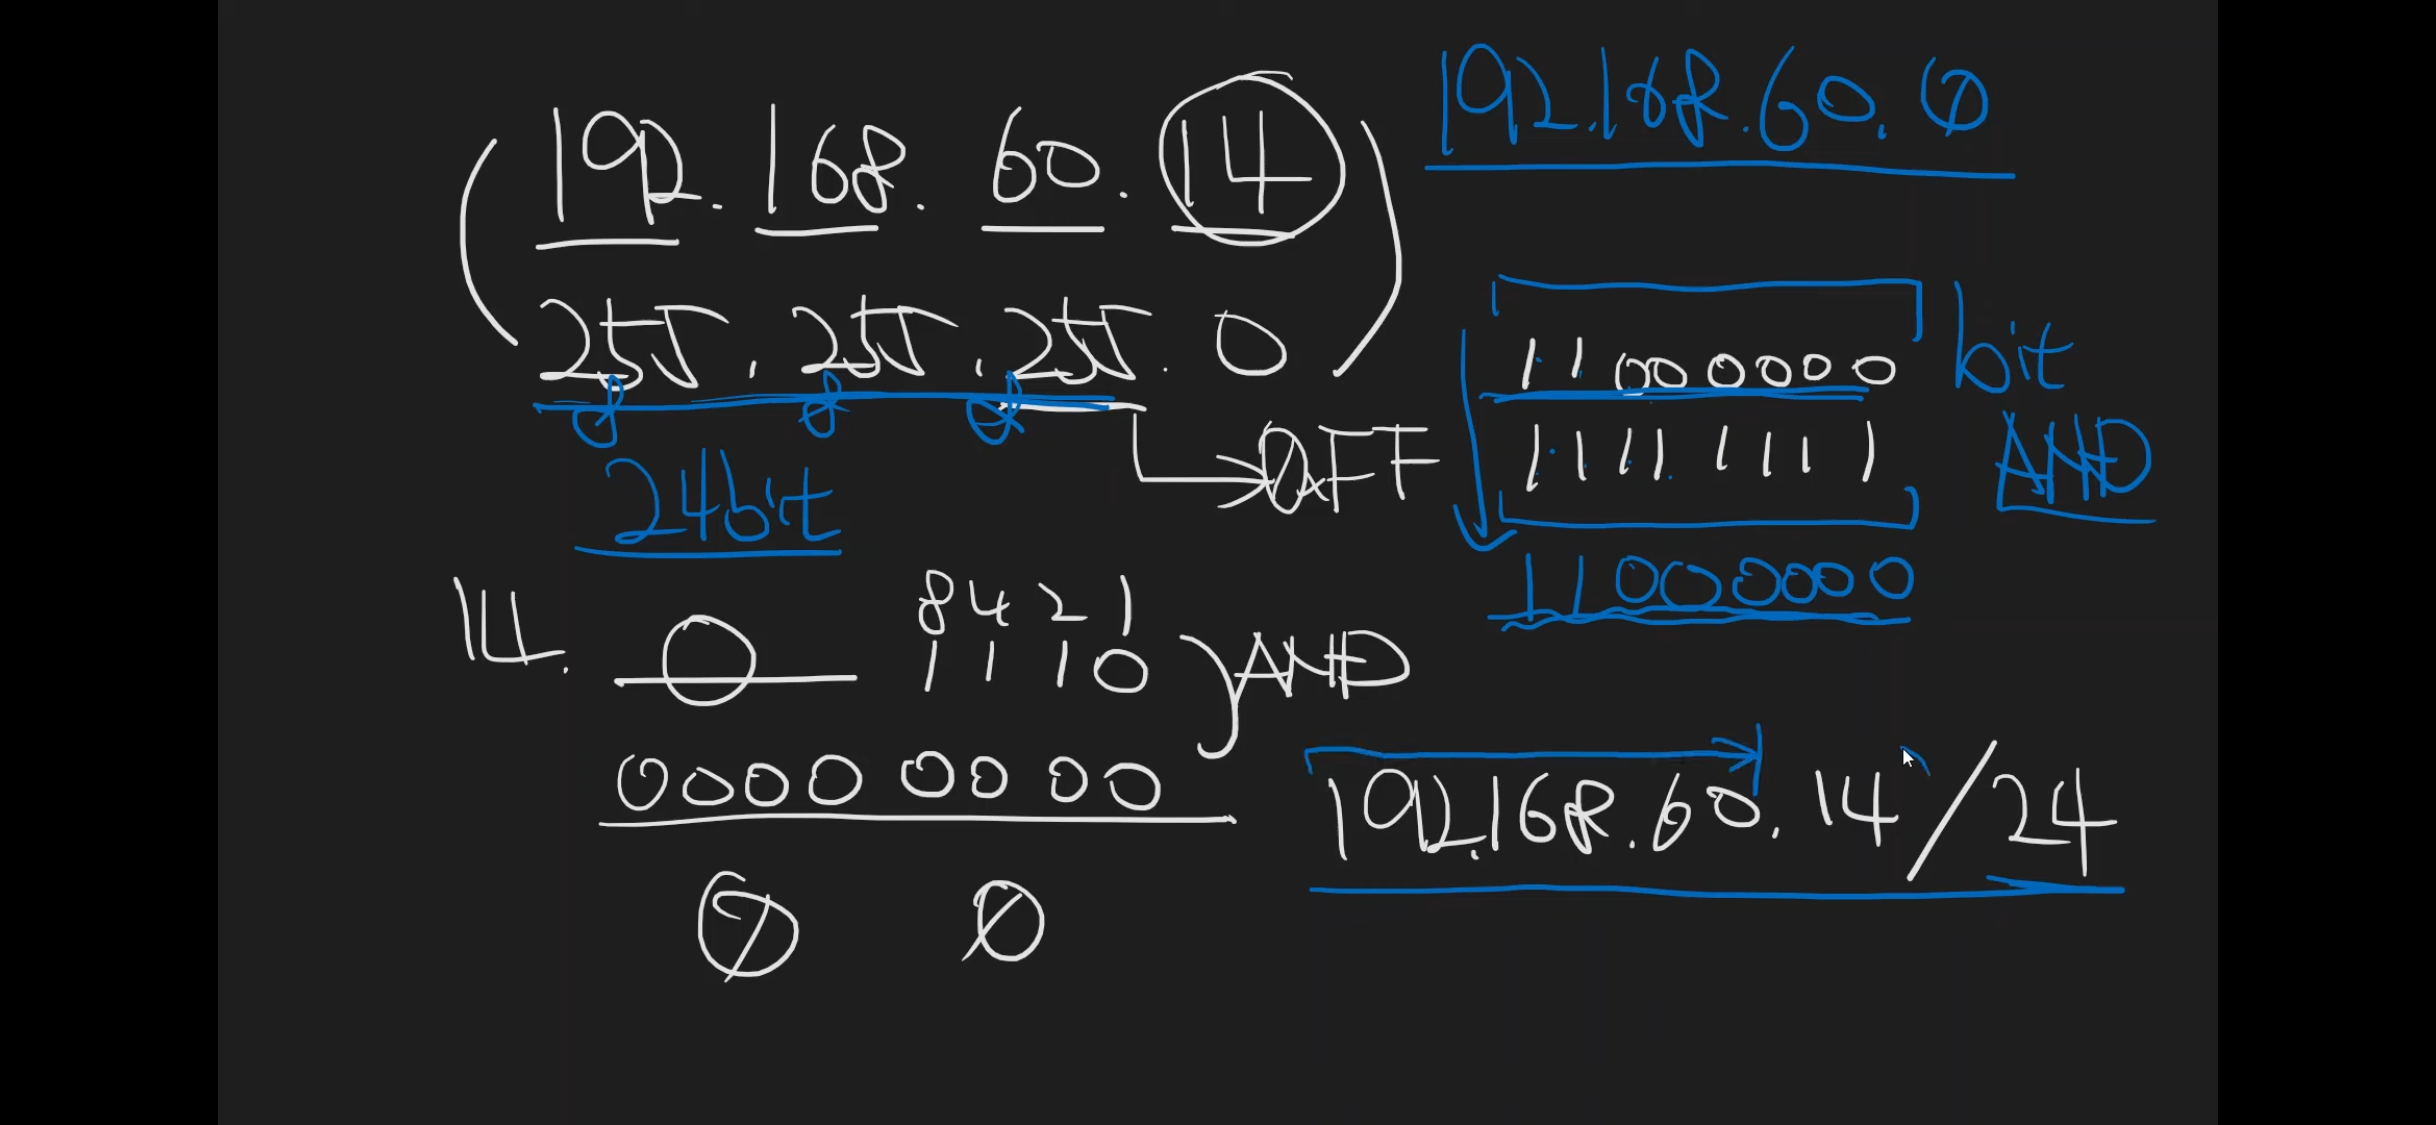 192.168.60.14
255.255.255.0
8 8 8
24bit
0xFF
192.168.60.0
11000000
11111111
bit
AND
11000000
8421
14. 0 1110
AND
0000 0000
0 0
192.168.60.14/24